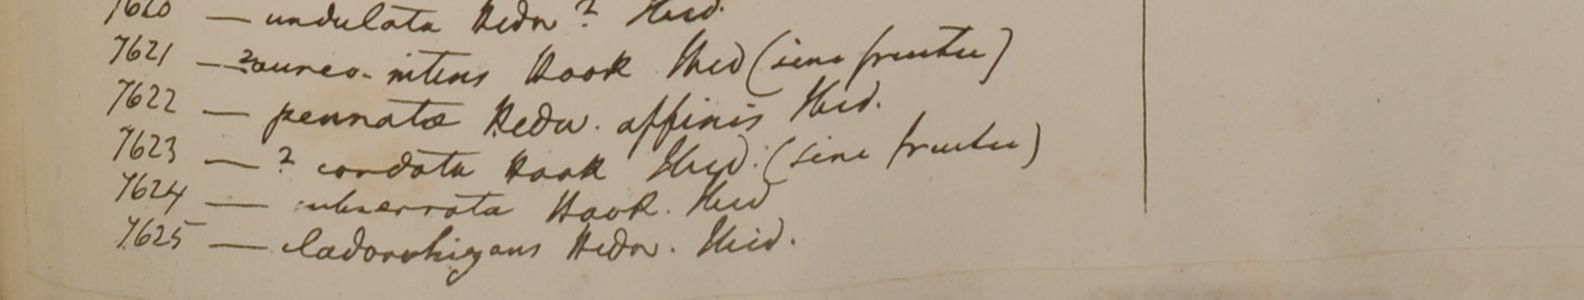 7620 — undulata Hedw ? Ibid.
7621 — ? aureo-nitens Hook Ibid (sine fructu)
7622 — pennatæ Hedw. affinis Ibid.
7623 — ? cordata Hook Ibid. (sine fructu)
7624 — subserrata Hook. Ibid
7625 — cladorrhizans Hedw. Ibid.